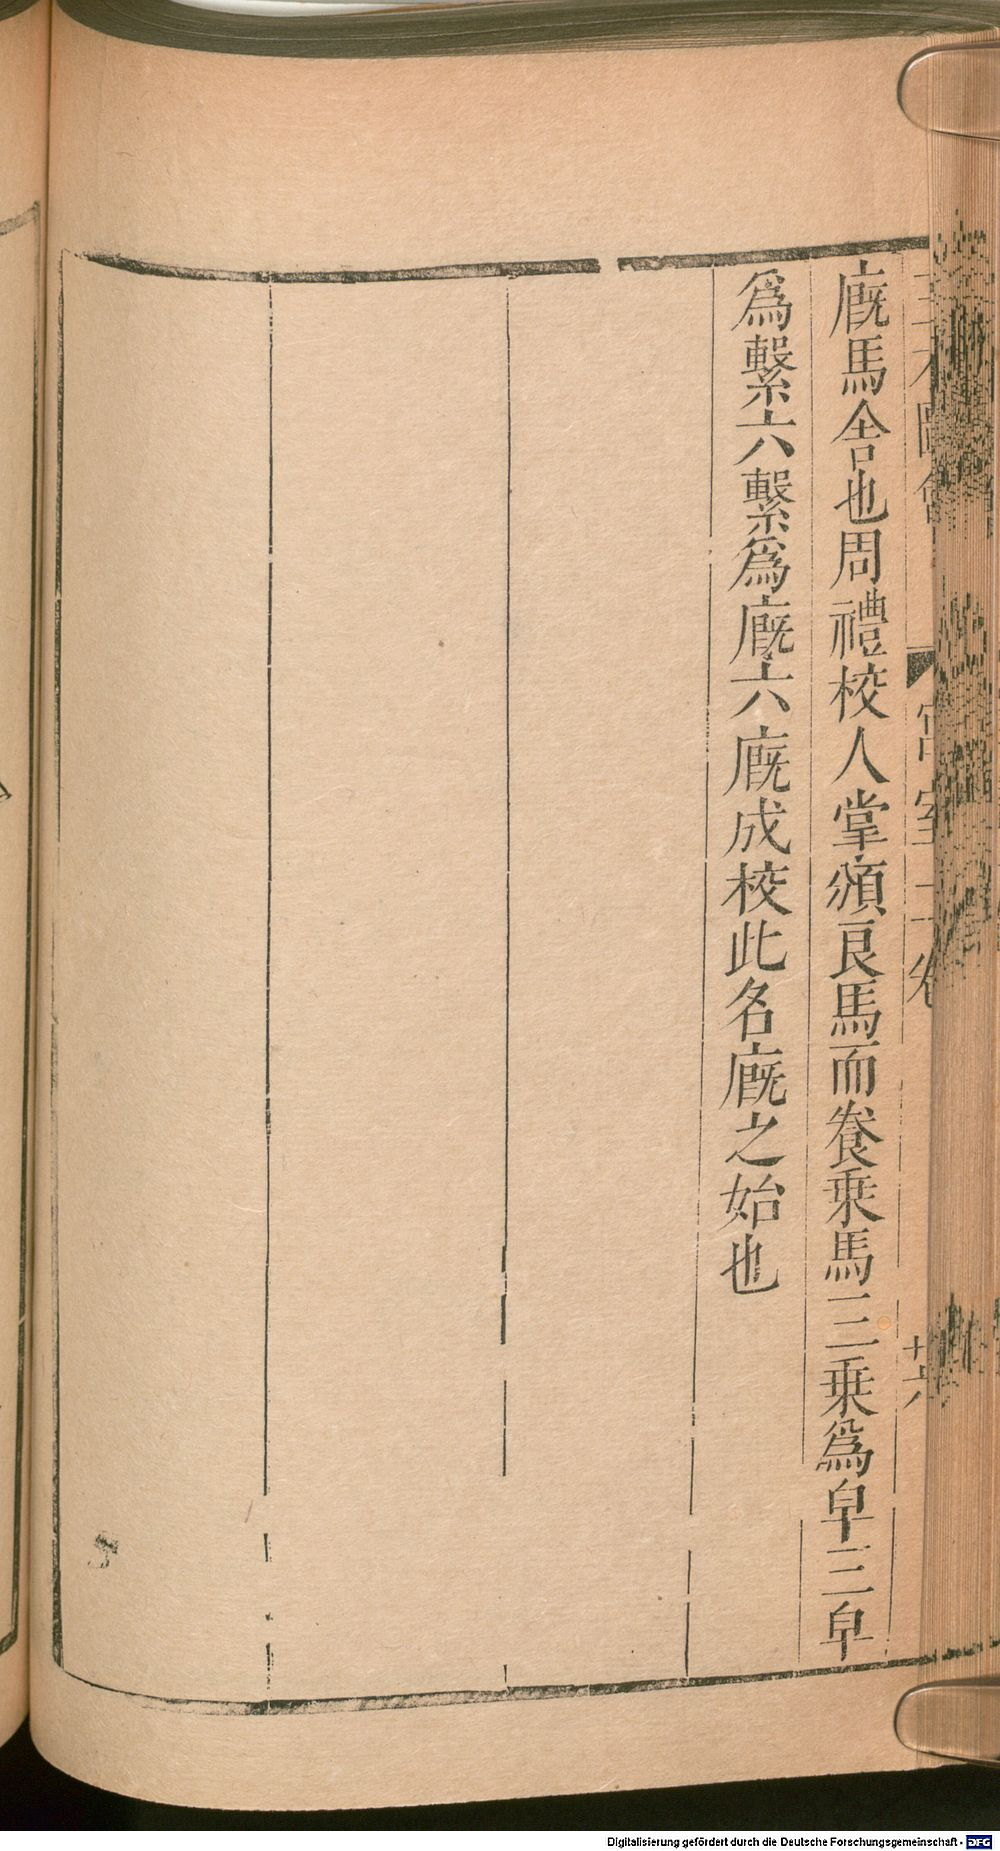 廐馬舎也周禮校人掌頒良馬而養乗馬三乗爲皁三皁
爲繫六繫爲廐六廐成校此名廐之始也
宮室二卷
廿六
Digitalisierung gefördert durch die Deutsche Forschungsgemeinschaft - DFG